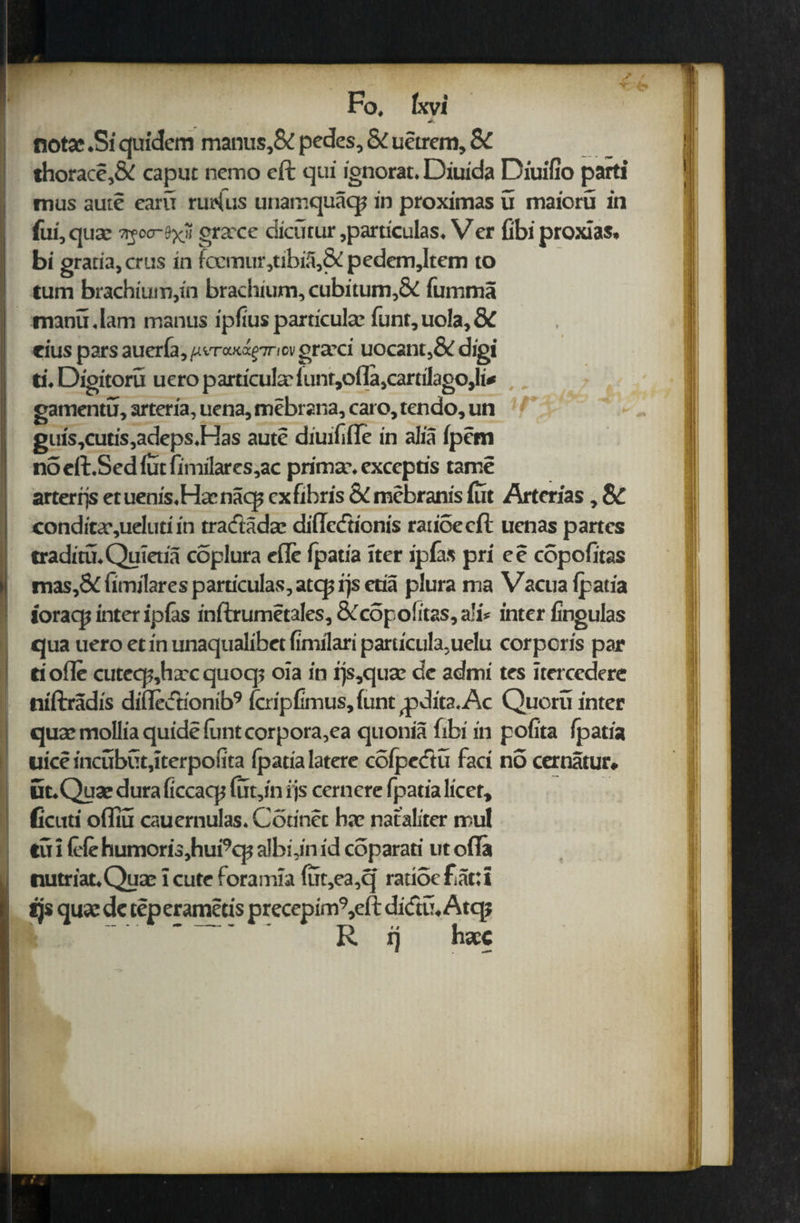 Fo. lxvi
notæ.Si quidem manus,& pedes,& uētrem, &
thoracē,& caput nemo est qui ignorat. Diuida Diuisio parti
mus autē earū rursus unamquāq; in proximas ū maiorū in
sui, quæ προσεχῆ græce dicūtur,particulas. Ver sibi proxīas.
bi gratia,crus in fœmur,tibiā,& pedem,Item to
tum brachium,in brachium, cubitum,& summā
manū.Iam manus ipsius particulæ sunt,uola,&
eius pars auersa, μετακάρπιον græci uocant,& digi
ti. Digitorū uero particulæ sunt,ossa,cartilago,li-
gamentū, arteria,uena,mēbrana, caro,tendo,un
guis,cutis,adeps.Has autē diuisisse in aliā spēm
nō est.Sed sūt similares,ac primæ. exceptis tamē
arterijs et uenis.Hæ nāq; ex fibris & mēbranis sūt Arterias, &
conditæ,ueluti in tractādæ dissectionis ratiōe est uenas partes
traditū.Quīetiā cōplura esse spatia īter ipsas pri eē cōpositas
mas,& similares particulas, atq; ijs etiā plura ma Vacua spatia
ioraq; inter ipsas instrumētales, & cōpositas, ali- inter singulas
qua uero et in unaqualibet similari particula,uelu corporis par
ti osse cuteq;,hæc quoq; oīa in ijs,quæ de admi tes ītercedere
nistrādis dissectionib⁹ scripsimus,sunt ꝓdita.Ac Quorū inter
quæ mollia quidē sunt corpora,ea quoniā sibi in posita spatia
uicē incūbūt,īterposita spatia latere cōspectū faci nō cernātur.
ūt.Quæ dura siccaq; sūt,in ijs cernere spatia licet,
sicuti ossiū cauernulas. Cōtinēt hæ nat̄aliter mul
tū ī sese humoris,hui⁹q; albi,in id cōparati ut ossa
nutriat.Quæ ī cute foramīa sūt,ea,q̄ ratiōe fiāt:ī
ijs quæ de tēperamētis precepim⁹,est dictū.Atq;
R ij hæc